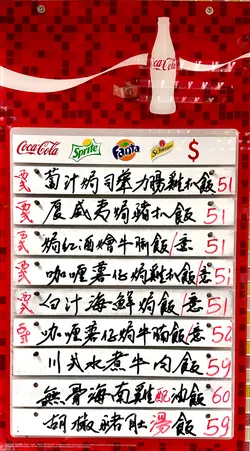 Coca-Cola
Coca-Cola Sprite Fanta Schweppes $
西式 葡汁焗司華力腸雞扒飯 51
西式 夏威夷焗豬扒飯 51
西式 焗紅酒燴牛腩飯/意 51
西式 咖喱薯仔焗雞扒飯/意 51
西式 白汁海鮮焗飯 51
西式 咖喱薯仔焗牛腩飯/意 52
川式水煮牛肉飯 59
無骨海南雞配油飯 60
胡椒豬肚湯飯 59